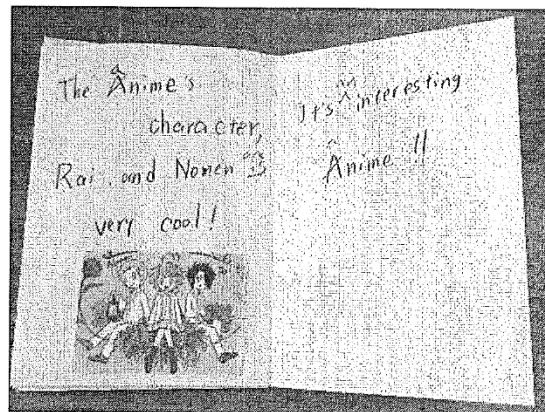 The Ânime's
character,
Rai, and Nomen
very cool!
It's interesting
Ânime !!